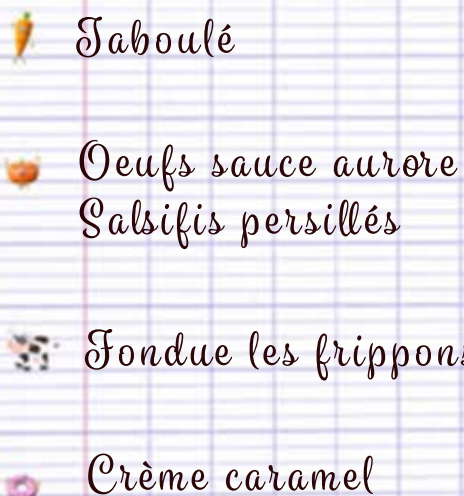 Taboulé
Oeufs sauce aurore
Salsifis persillés
Fondue les frippons
Crème caramel